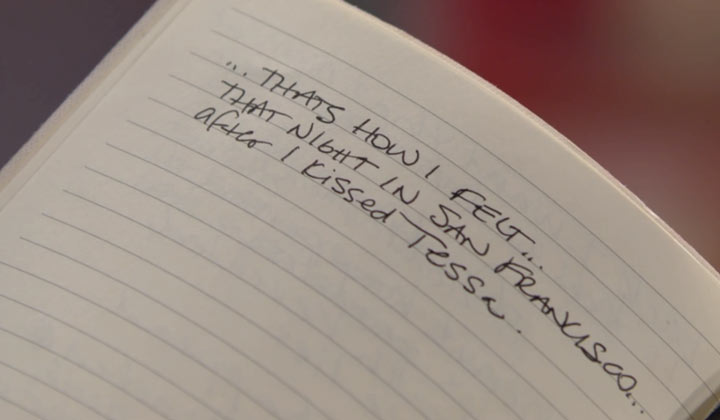 ... THATS HOW I FELT...
THAT NIGHT IN SAN FRANCISCO...
after I kissed Tessa.